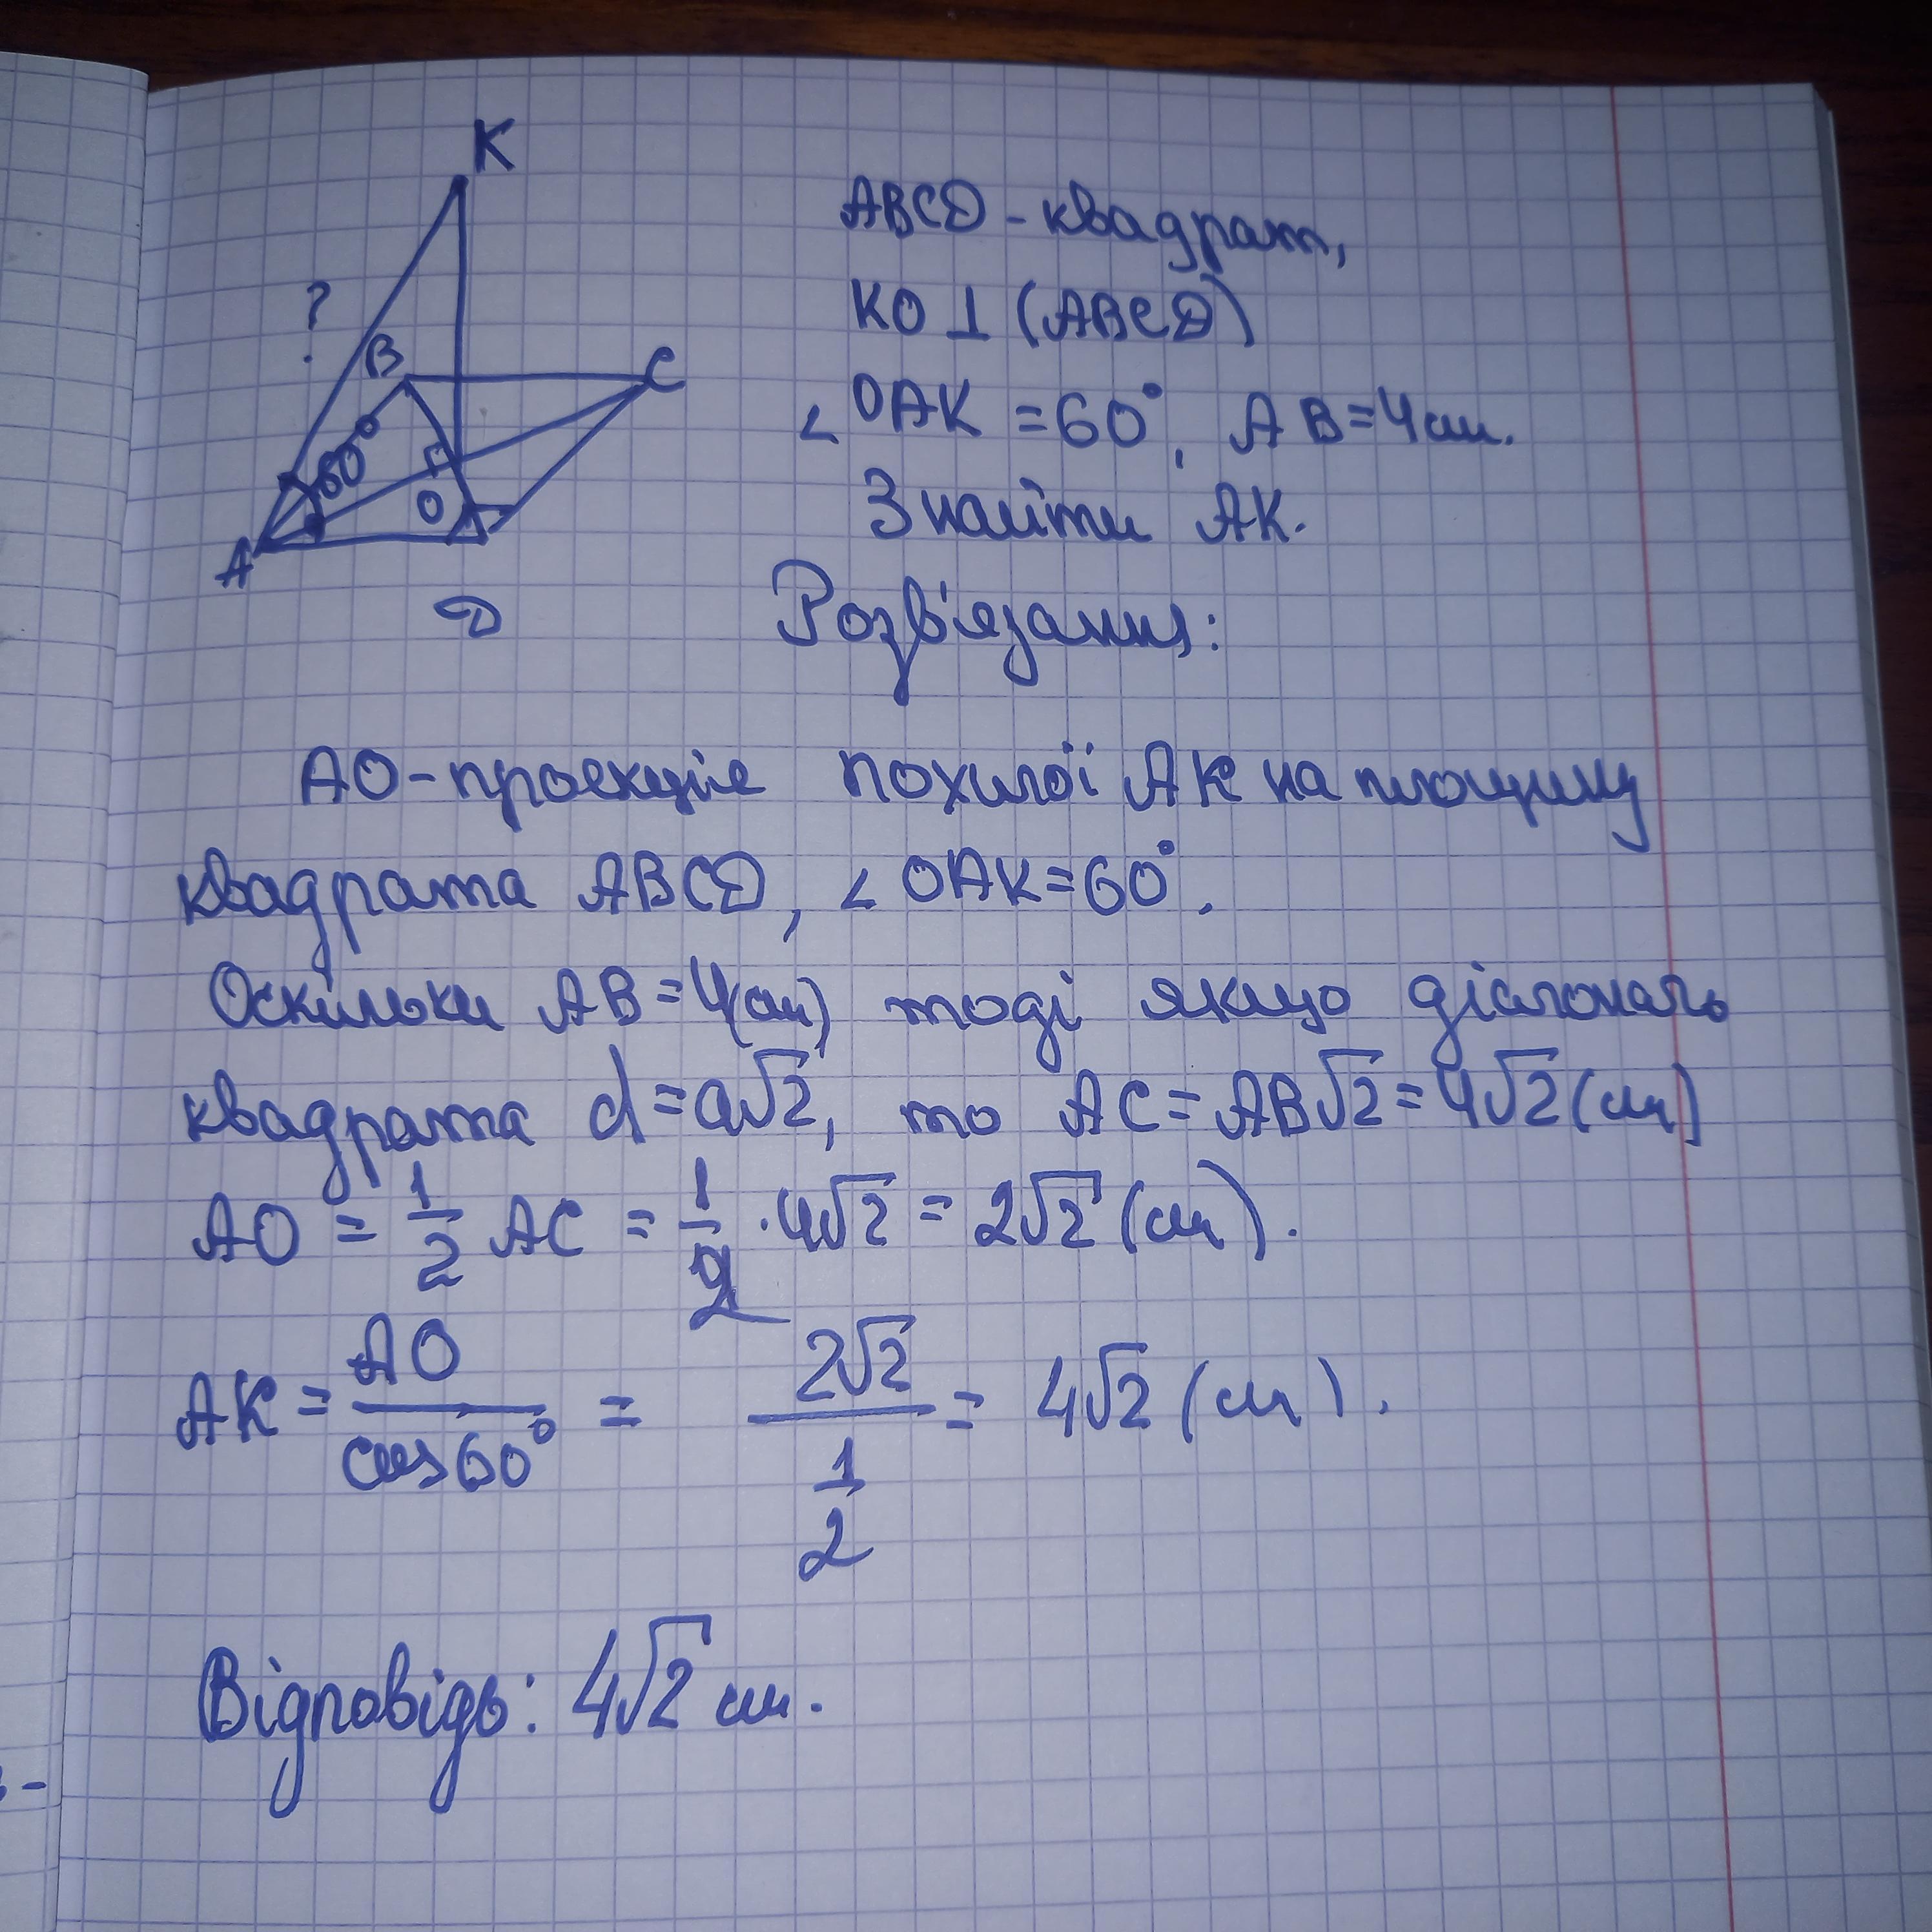 K
?
B
C
60°
O
A
D
ABCD - квадрат,
KO ⊥ (ABCD)
∠OAK = 60°, AB = 4 см.
Знайти AK.
Розв'язання:
AO - проекція похилої AK на площину
квадрата ABCD, ∠OAK = 60°.
Оскільки AB = 4(см) тоді якщо діагональ
квадрата d = a√2, то AC = AB√2 = 4√2 (см)
AO = 1/2 AC = 1/2 · 4√2 = 2√2 (см).
AK = AO/cos60° = 2√2/(1/2) = 4√2 (см).
Відповідь: 4√2 см.